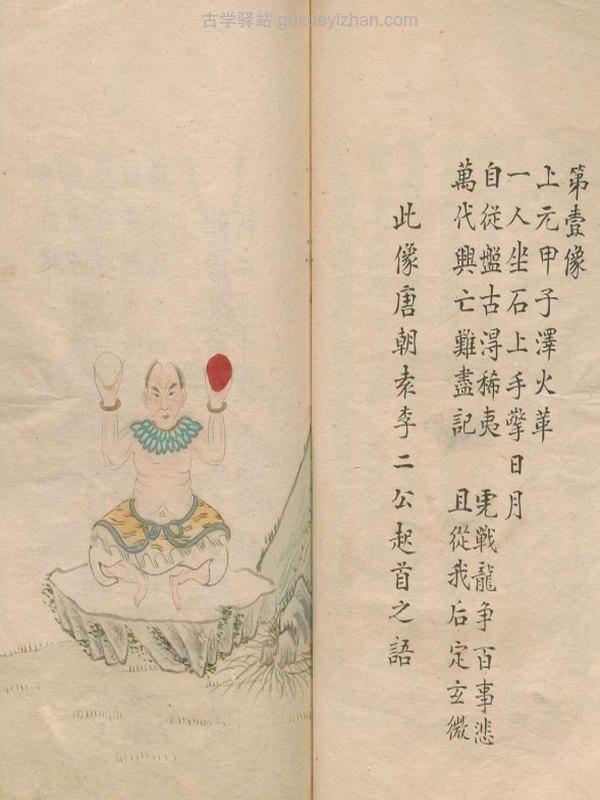 古学驿站 guxueyizhan.com
第壹像
上元甲子澤火革
一人坐石上手擎日月
自從盤古淂稀夷 虎戰龍争百事悲
萬代興亡難盡記 且從我后定玄微
此像唐朝袁李二公起首之語